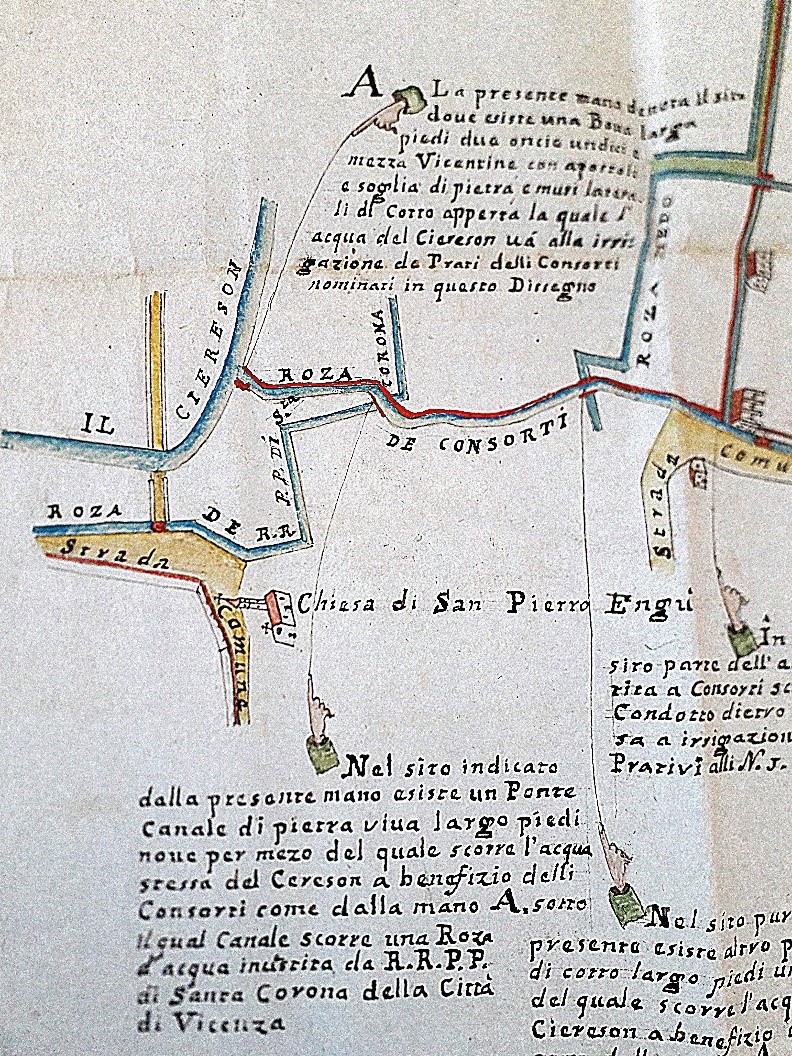 A
La presente mano denota il sito
doue esiste una Boca larga
piedi due oncie undici e
mezza Vicentine con
e soglia di pietra e muri latera-
li di Cotto apperta la quale l'
acqua del Ciereson uà alla irri-
gazione de Prati delli Consorti
nominati in questo Dissegno
IL CIERESON
ROZA
CORONA
DE CONSORTI
ROZA
P.P. DI S.TA
ROZA DE R.R
Strada
Comuna
Strada
Comu
Chiesa di San Pierro Engù
In
sito parte dell'a
rita a Consorti sc
Condotto dietro
sa a irrigazion
Prativi alli N. 5.
Nel sito indicato
dalla presente mano esiste un Ponte
Canale di pietra viua largo piedi
noue per mezo del quale scorre l'acqua
stessa del Cereson a benefizio delli
Consorti come dalla mano A, sotto
il qual Canale scorre una Roza
d'acqua inuistita da R.R.P.P.
di Santa Corona della Città
di Vicenza
Nel sito pur
presente esiste altro p
di cotto largo piedi un
del quale scorre l'acq
Ciereson a benefizio